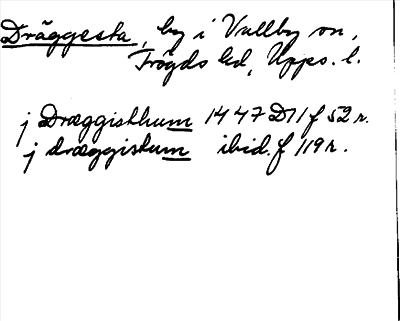 Dräggesta, by i Vallby sn,
Trögds hd, Upps. l.
j Dræggisthum 1447 D11 f 52 r.
j dræggistum ibid. f 119 r.